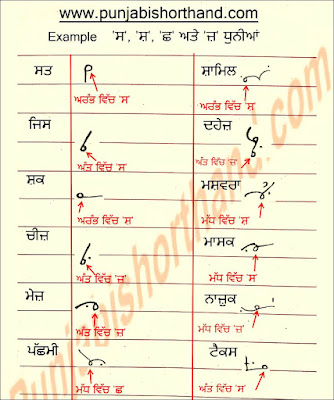 www.punjabishorthand.com
Example 'ਸ', 'ਸ਼', 'ਛ' ਅਤੇ 'ਜ਼' ਧੁਨੀਆਂ
ਸਤ
ਅਰੰਭ ਵਿੱਚ 'ਸ
ਸ਼ਾਮਿਲ
ਅਰੰਭ ਵਿੱਚ 'ਸ਼
ਜਿਸ
ਅੰਤ ਵਿੱਚ 'ਸ
ਦਹੇਜ਼
ਅੰਤ ਵਿੱਚ 'ਜ਼
ਸ਼ਕ
ਅਰੰਭ ਵਿੱਚ 'ਸ਼
ਮਸ਼ਵਰਾ
ਮੱਧ ਵਿੱਚ 'ਸ਼
ਚੀਜ਼
ਅੰਤ ਵਿੱਚ 'ਜ਼'
ਮਾਸਕ
ਮੱਧ ਵਿੱਚ 'ਸ
ਮੇਜ਼
ਅੰਤ ਵਿੱਚ 'ਜ਼
ਨਾਜ਼ੁਕ
ਮੱਧ ਵਿੱਚ 'ਜ਼'
ਪੱਛਮੀ
ਮੱਧ ਵਿੱਚ 'ਛ
ਟੈਕਸ
ਅੰਤ ਵਿੱਚ 'ਸ
Punjabishorthand.com